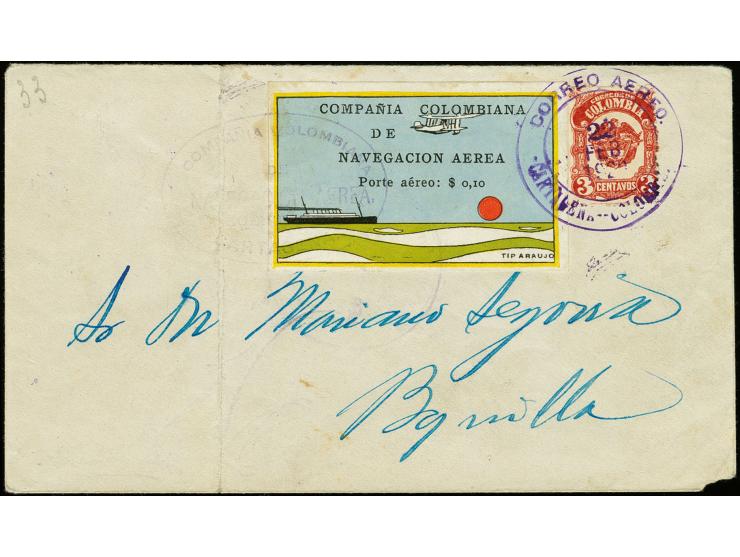 33
COMPAÑIA COLOMBIANA
DE
NAVEGACION AEREA
Porte aéreo: $ 0,10
TIP ARAUJO
CORREO AEREO.
22
FEB
CARTAGENA--COLOMBIA
CORREOS DE
COLOMBIA
3 3
CENTAVOS
COMPAÑIA COLOMBIANA
DE
AEREA.
Sr Dn Mariano Segovia
Bquilla